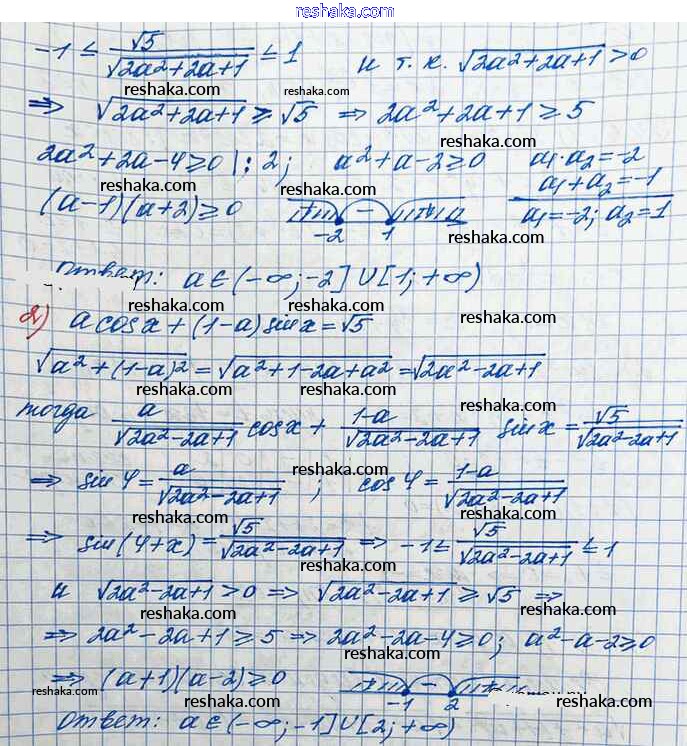 reshaka.com
-1 ≤ √5/√(2a²+2a+1) ≤ 1 и т.к. √(2a²+2a+1) > 0
reshaka.com reshaka.com
⇒ √(2a²+2a+1) ≥ √5 ⇒ 2a²+2a+1 ≥ 5
reshaka.com
2a²+2a-4 ≥ 0 |:2; a²+a-2 ≥ 0 a₁·a₂=-2
reshaka.com reshaka.com a₁+a₂=-1
(a-1)(a+2) ≥ 0 + -2 - 1 + a₁=-2; a₂=1
reshaka.com reshaka.com
Ответ: a∈(-∞;-2]∪[1;+∞)
reshaka.com reshaka.com
2) a cos x + (1-a) sin x = √5
reshaka.com
√(a²+(1-a)²) = √(a²+1-2a+a²) = √(2a²-2a+1)
reshaka.com reshaka.com
тогда a/√(2a²-2a+1) cos x + (1-a)/√(2a²-2a+1) sin x = √5/√(2a²-2a+1)
reshaka.com reshaka.com
⇒ sin φ = a/√(2a²-2a+1); cos φ = (1-a)/√(2a²-2a+1)
reshaka.com reshaka.com
⇒ sin(φ+x) = √5/√(2a²-2a+1) ⇒ -1 ≤ √5/√(2a²-2a+1) ≤ 1
reshaka.com reshaka.com
и √(2a²-2a+1) > 0 ⇒ √(2a²-2a+1) ≥ √5 ⇒
reshaka.com reshaka.com
⇒ 2a²-2a+1 ≥ 5 ⇒ 2a²-2a-4 ≥ 0; a²-a-2 ≥ 0
reshaka.com reshaka.com
⇒ (a+1)(a-2) ≥ 0 + -1 - 2
reshaka.com reshaka.com
Ответ: a∈(-∞;-1]∪[2;+∞)
reshaka.com